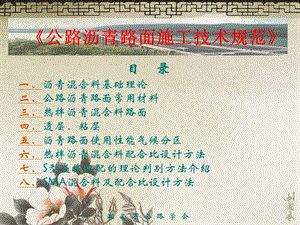 《公路沥青路面施工技术规范》
目 录
一、沥青混合料基础理论
二、公路沥青路面常用材料
三、热拌沥青混合料路面
四、透层、粘层
五、沥青路面使用性能气候分区
六、热拌沥青混合料配合比设计方法
七、S型 配的理论判别方法介绍
八、SMA混合料及配合比设计方法
路学会